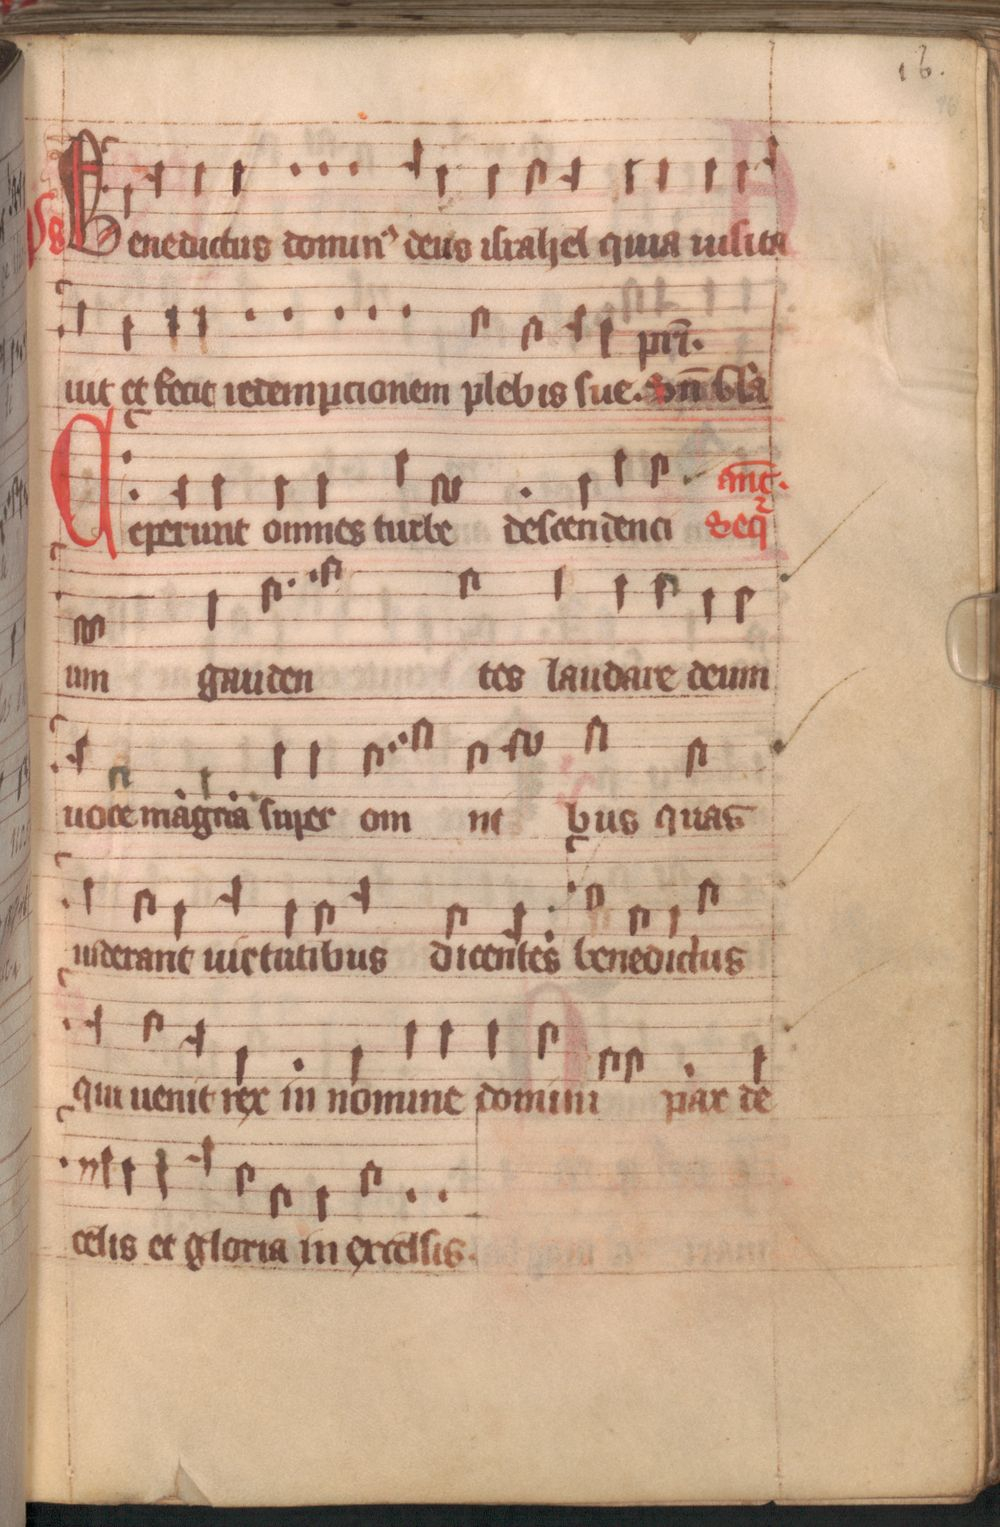 16.
Vs Benedictus domin⁹ deus israhel quia uisita
uit et fecit redempcionem plebis sue. p̄ri.
Ceperunt omnes turbe descendenci añt. seq̄
um gauden tes laudare deum
uoce magna super om ni bus quas
uiderant uirtutibus dicentes benedictus
qui uenit rex in nomine domini pax de
celis et gloria in excelsis.